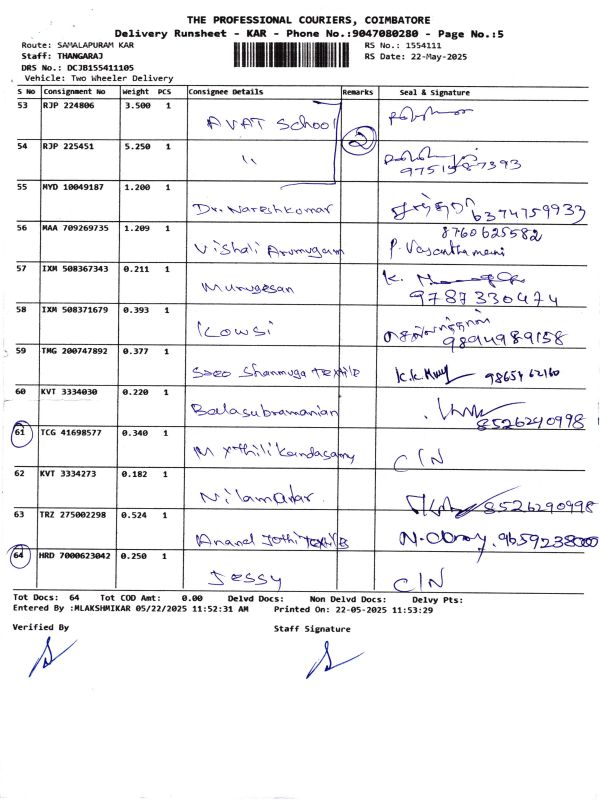 THE PROFESSIONAL COURIERS, COIMBATORE
Delivery Runsheet - KAR - Phone No.:9047080280 - Page No.:5
Route: SAMALAPURAM KAR
RS No.: 1554111
Staff: THANGARAJ
RS Date: 22-May-2025
DRS No.: DCJB155411105
Vehicle: Two Wheeler Delivery
S No Consignment No Weight PCS Consignee Details Remarks Seal & Signature
53 RJP 224806 3.500 1
AVAT School
2
54 RJP 225451 5.250 1
"
9751587393
55 MYD 10049187 1.200 1
Dr. Nareshkumar
6374759933
56 MAA 709269735 1.209 1
8760625582
Vishali Arumugam P. Vasanthamani
57 IXM 508367343 0.211 1
Murugesan
9787330474
58 IXM 508371679 0.393 1
Kowsi
9894989158
59 TMG 200747892 0.377 1
Sree Shanmuga Textile K.K. 9865462160
60 KVT 3334030 0.220 1
Balasubramanian
8526290998
61 TCG 41698577 0.340 1
Mythili Kandasamy C/N
62 KVT 3334273 0.182 1
Nilamadar. 8526290998
63 TRZ 275002298 0.524 1
Anand Jothi Textiles 9659238000
64 HRD 7000623042 0.250 1
Jessy C/N
Tot Docs: 64 Tot COD Amt: 0.00 Delvd Docs: Non Delvd Docs: Delvy Pts:
Entered By :MLAKSHMIKAR 05/22/2025 11:52:31 AM Printed On: 22-05-2025 11:53:29
Verified By Staff Signature